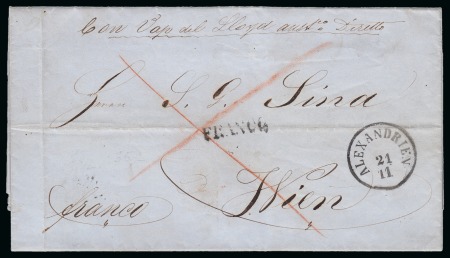 Con Vap. del Lloyd austo. Diretto
Herrn S. G. Sina
FRANCO
ALEXANDRIEN
21
11
franco
Wien